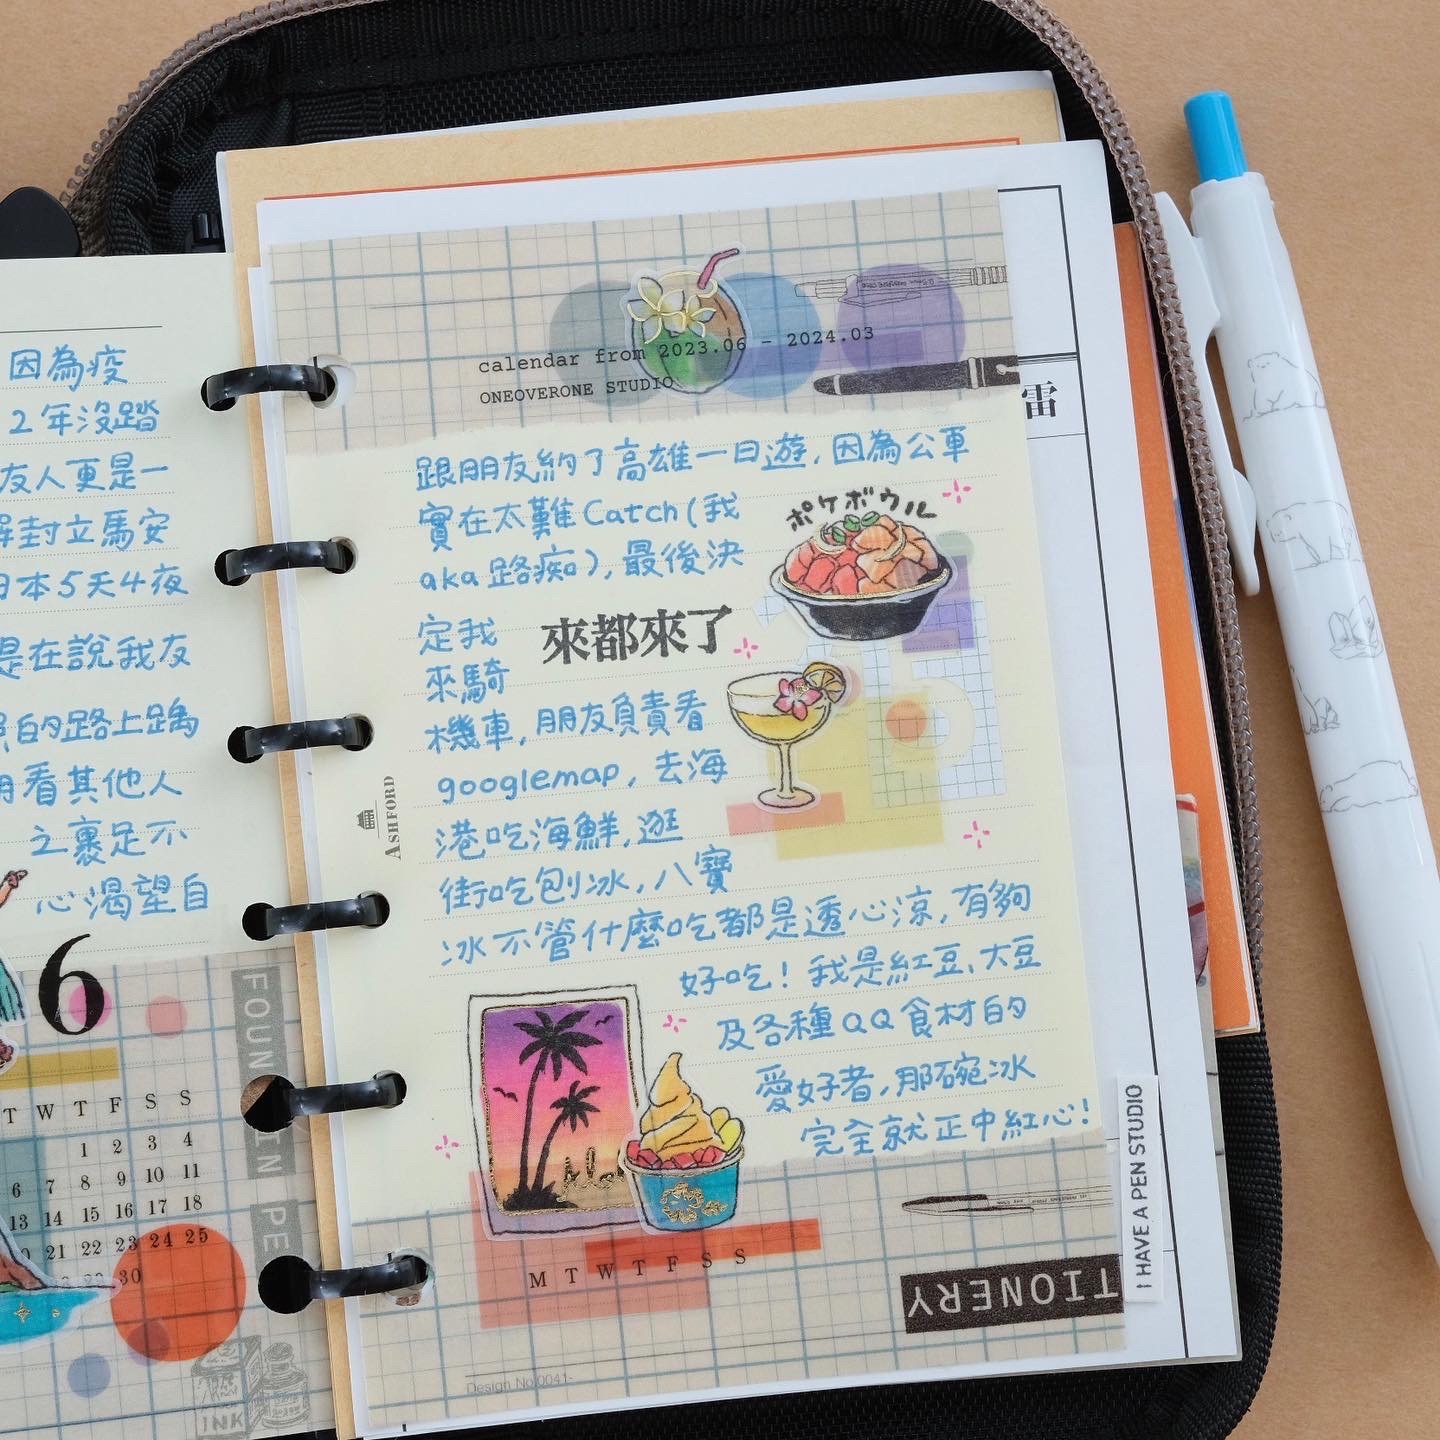 因為疫
2年沒踏
友人更是一
解封立馬安
日本5天4夜
是在說我友
的路上踽
看其他人
之裏足不
心渴望自
6
T W T F S S
1 2 3 4
6 7 8 9 10 11
13 14 15 16 17 18
20 21 22 23 24 25
28 29 30
FOUNTAIN PE
INK
calendar from 2023.06 - 2024.03
ONEOVERONE STUDIO
雷
跟朋友約了高雄一日遊，因為公車
實在太難Catch（我
aka路痴），最後決
定我
來都來了
來騎
機車，朋友負責看
googlemap，去海
港吃海鮮，逛
街吃刨冰，八寶
冰不管什麼吃都是透心涼，有夠
好吃！我是紅豆、大豆
及各種QQ食材的
愛好者，那碗冰
完全就正中紅心！
ポケボウル
ASHFORD
Alo
M T W T F S S
TIONERY
I HAVE A PEN STUDIO
Design No.0041-